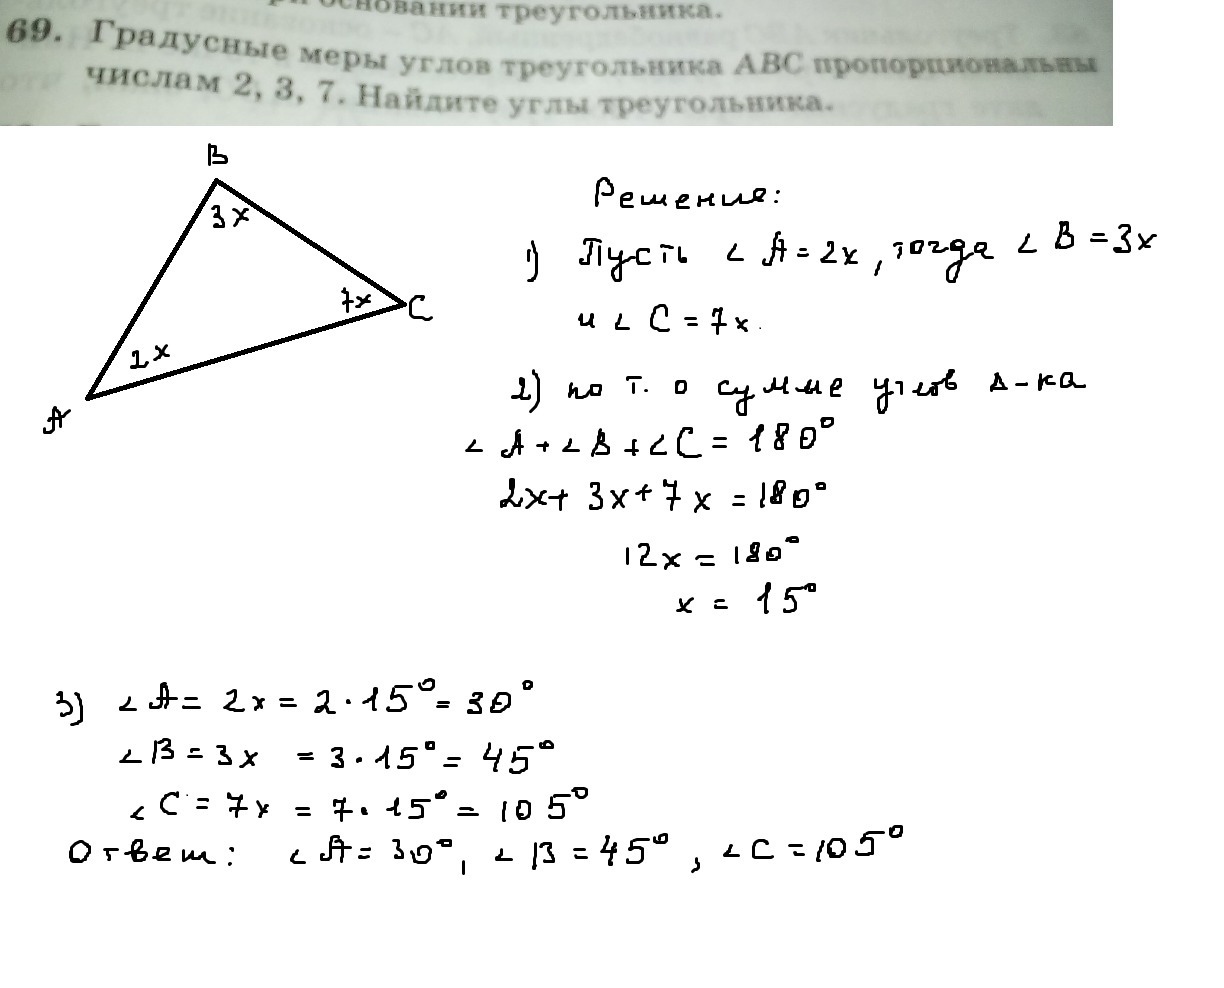 основании треугольника.
69. Градусные меры углов треугольника ABC пропорциональны
числам 2, 3, 7. Найдите углы треугольника.
B
3x
7x
C
2x
A
Решение:
1) Пусть ∠ A = 2x, тогда ∠ B = 3x
и ∠ C = 7x.
2) по т. о сумме углов Δ-ка
∠ A + ∠ B + ∠ C = 180°
2x + 3x + 7x = 180°
12x = 180°
x = 15°
3) ∠ A = 2x = 2 · 15° = 30°
∠ B = 3x = 3 · 15° = 45°
∠ C = 7x = 7 · 15° = 105°
Ответ: ∠ A = 30°, ∠ B = 45°, ∠ C = 105°